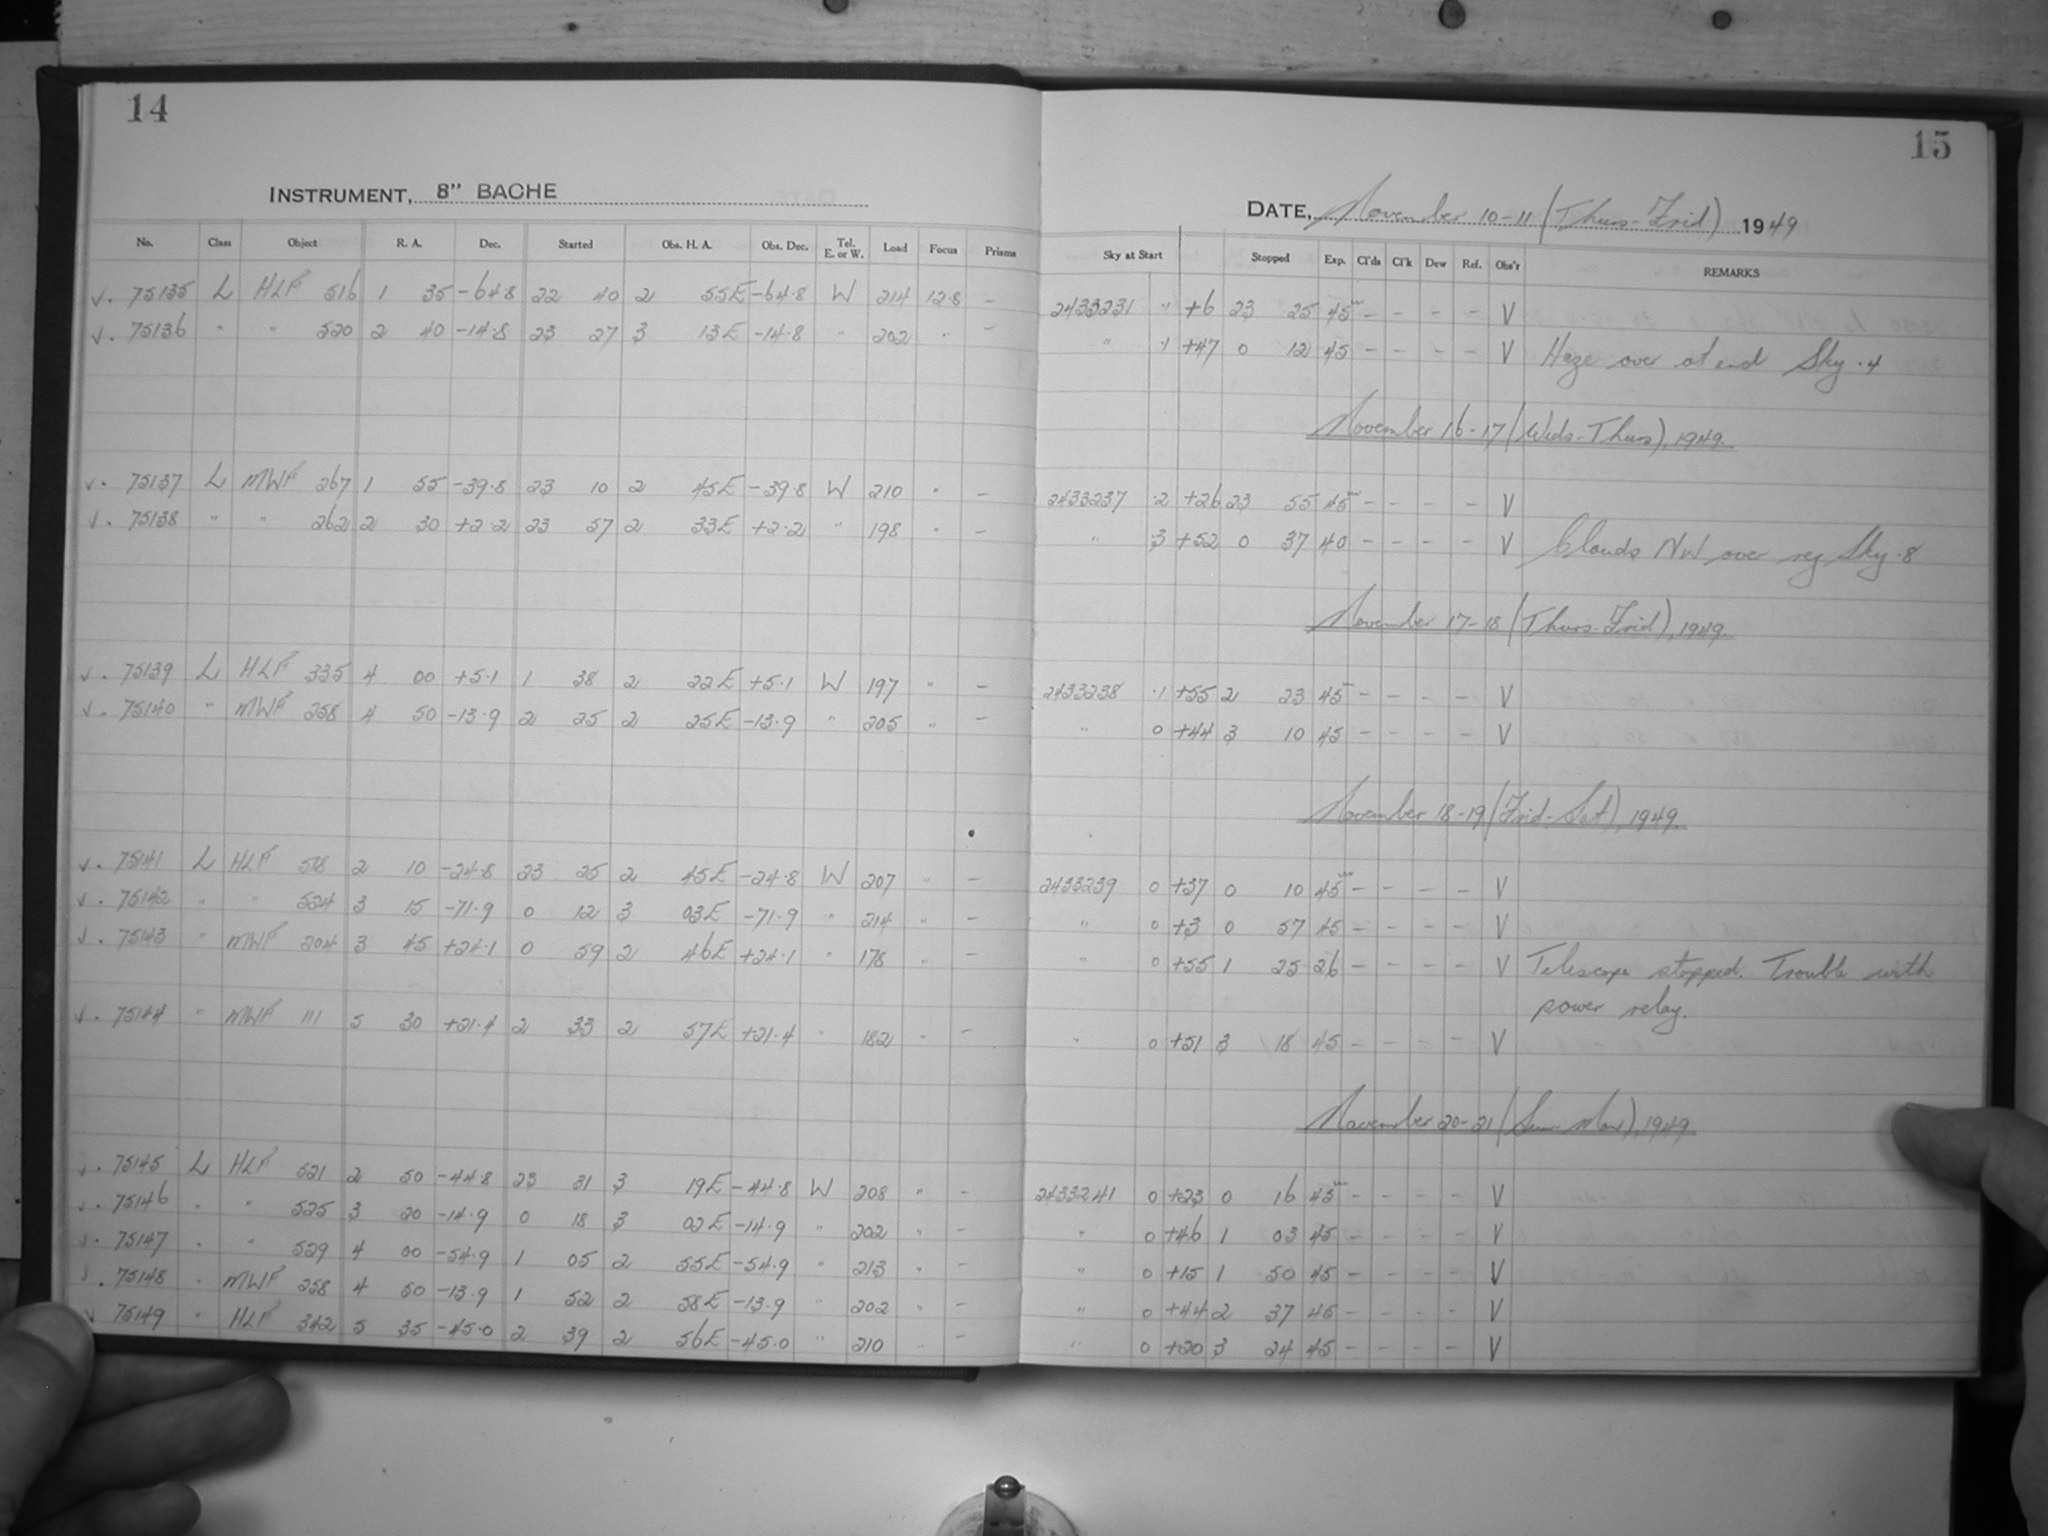 14
INSTRUMENT, 8" BACHE
No. Class Object R. A. Dec. Started Obs. H. A. Obs. Dec. Tel. E. or W. Load Focus Prisms
√. 75135 L HLF 516 1 35 -64.8 22 40 2 55E -64.8 W 214 12.8 -
√. 75136 " " 520 2 40 -14.8 23 27 3 13E -14.8 " 202 " -
√. 75137 L MWF 267 1 55 -39.8 23 10 2 45E -39.8 W 210 " -
√. 75138 " " 262 2 30 +2.2 23 57 2 33E +2.2 " 198 " -
√. 75139 L HLF 335 4 00 +5.1 1 38 2 22E +5.1 W 197 " -
√. 75140 " MWF 258 4 50 -13.9 2 25 2 25E -13.9 " 205 " -
√. 75141 L HLF 518 2 10 -24.8 23 25 2 45E -24.8 W 207 " -
√. 75142 " " 524 3 15 -71.9 0 12 3 03E -71.9 " 214 " -
√. 75143 " MWF 204 3 45 +24.1 0 59 2 46E +24.1 " 178 " -
√. 75144 " MWF 111 5 30 +21.4 2 33 2 57E +21.4 " 182 " -
√. 75145 L HLF 521 2 50 -44.8 23 31 3 19E -44.8 W 208 " -
√. 75146 " " 525 3 20 -14.9 0 18 3 02E -14.9 " 202 " -
√. 75147 " " 529 4 00 -54.9 1 05 2 55E -54.9 " 213 " -
√. 75148 " MWF 258 4 50 -13.9 1 52 2 58E -13.9 " 202 " -
√ 75149 " HLF 342 5 35 -45.0 2 39 2 56E -45.0 " 210 " -
15
DATE, November 10-11 (Thurs-Frid) 1949
Sky at Start Stopped Exp. Cl'ds Cl'k Dew Ref. Obs'r REMARKS
2433231 " +6 23 25 45m - - - - V
" .1 +47 0 12 45 - - - - V Haze over at end Sky .4
November 16-17 (Weds-Thurs), 1949.
2433237 .2 +26 23 55 45m - - - - V
" .3 +52 0 37 40 - - - - V Clouds NW over reg Sky .8
November 17-18 (Thurs-Frid), 1949.
2433238 .1 +55 2 23 45m - - - - V
" 0 +44 3 10 45 - - - - V
November 18-19 (Frid-Sat), 1949.
2433239 0 +37 0 10 45m - - - - V
" 0 +3 0 57 45 - - - - V
" 0 +55 1 25 26 - - - - V Telescope stopped. Trouble with
power relay.
" 0 +51 3 18 45 - - - - V
November 20-21 (Sun-Mon), 1949
2433241 0 +23 0 16 45m - - - - V
" 0 +46 1 03 45 - - - - V
" 0 +15 1 50 45 - - - - V
" 0 +44 2 37 45 - - - - V
" 0 +20 3 24 45 - - - - V